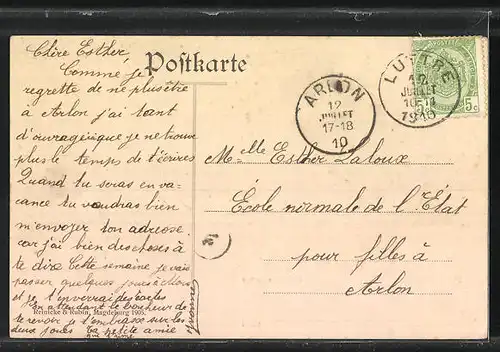 Chère Esther
Postkarte
Comme je
regrette de ne plus être
à Arlon j'ai tant
d'ouvrage que je ne trouve
plus le temps de t'écrire
Quand tu seras en va-
cance tu voudras bien
m'envoyer ton adresse
car j'ai bien des choses à
te dire Cette semaine je vais
passer quelques jours à Mon
et je t'enverrai des cartes
En attendant le bonheur de
te revoir je t'embrasse sur les
deux joues Ta petite amie
Reinicke & Rubin, Magdeburg 1905.
ARLON
12
JUILLET
17-18
10
LUTTRE
12
JUILLET
10-11
1910
5c
Melle Esther Laloux
École normale de l'État
pour filles à
Arlon